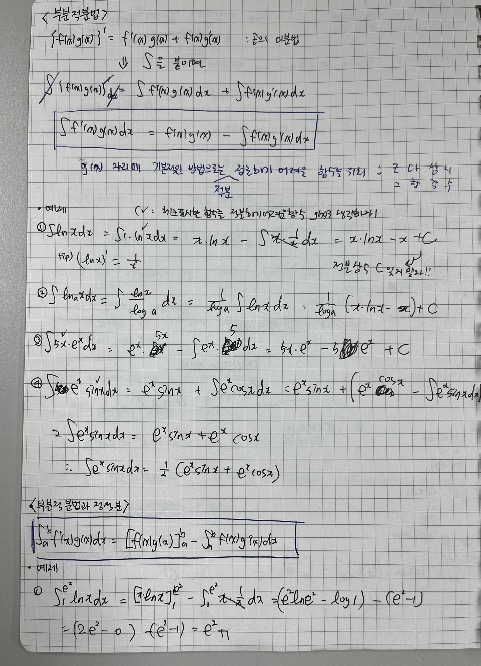 <부분적분법>
{f(x)g(x)}' = f'(x)g(x) + f(x)g'(x) : 곱의 미분법
⇓ ∫을 붙이면
∫{f(x)g(x)}'dx = ∫f'(x)g(x)dx + ∫f(x)g'(x)dx
∫f'(x)g(x)dx = f(x)g(x) - ∫f(x)g'(x)dx
g(x) 자리에 기본적인 방법으로는 적분하기 어려운 함수를 : 로 다 삼 지
적분
• 예제
① ∫lnxdx = ∫1·lnxdx = x·lnx - ∫x·1/x dx = x·lnx - x + C
tip) (lnx)' = 1/x
적분상수 C 잊지 말자!!
② ∫ dx = ∫ lnx/ dx = ∫lnxdx = (x·lnx - x) + C
③ ∫5x·e^x dx = e^x·5x - ∫e^x·5dx = 5x·e^x - 5e^x + C
④ ∫e^x sinxdx = e^x sinx + ∫e^x cosxdx = e^x sinx + (e^x cosx - ∫e^x sinxdx)
2∫e^x sinxdx = e^x sinx + e^x cosx
∴ ∫e^x sinxdx = 1/2 (e^x sinx + e^x cosx)
<부분적분법과 정적분>
∫_a^b f'(x)g(x)dx = [f(x)g(x)]_a^b - ∫_a^b f(x)g'(x)dx
• 예제
① ∫_1^{e²} lnxdx = [x·lnx]_1^{e²} - ∫_1^{e²} x·1/x dx = (e²lne² - log1) - (e²-1)
= (2e² - 0) - (e²-1) = e²+1